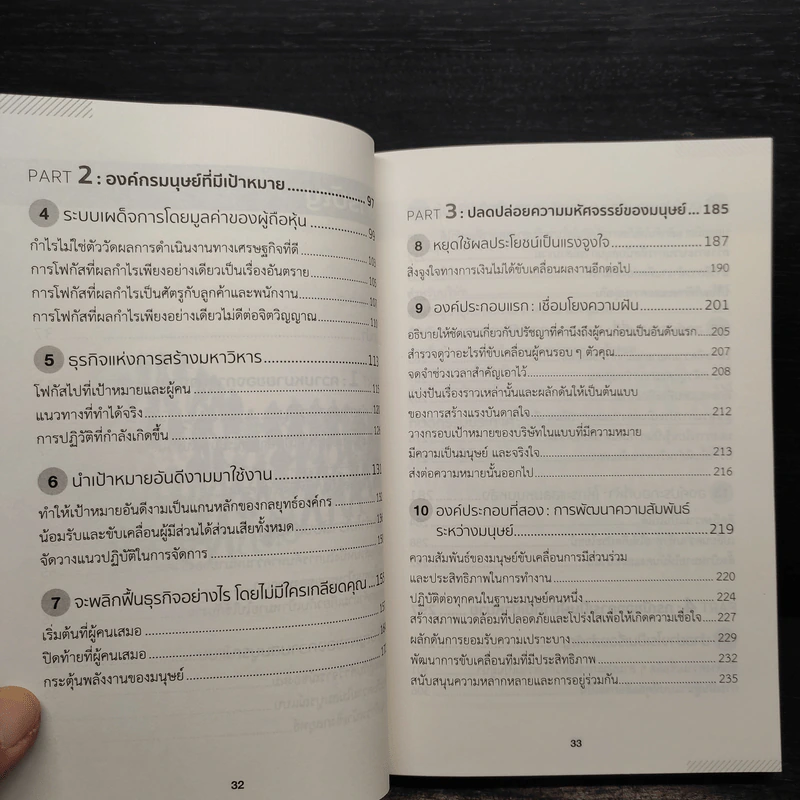 PART 2 : องค์กรมนุษย์ที่มีเป้าหมาย 97
4 ระบบเผด็จการโดยมูลค่าของผู้ถือหุ้น 99
กำไรไม่ใช่ตัววัดผลการดำเนินงานทางเศรษฐกิจที่ดี 103
การโฟกัสที่ผลกำไรเพียงอย่างเดียวเป็นเรื่องอันตราย 105
การโฟกัสที่ผลกำไรเป็นศัตรูกับลูกค้าและพนักงาน 107
การโฟกัสที่ผลกำไรเพียงอย่างเดียวไม่ดีต่อจิตวิญญาณ 110
5 ธุรกิจแห่งการสร้างมหาวิหาร 113
โฟกัสไปที่เป้าหมายและผู้คน
แนวทางที่ทำได้จริง
การปฏิวัติที่กำลังเกิดขึ้น
6 นำเป้าหมายอันดีงามมาใช้งาน
ทำให้เป้าหมายอันดีงามเป็นแกนหลักของกลยุทธ์องค์กร
น้อมรับและขับเคลื่อนผู้มีส่วนได้ส่วนเสียทั้งหมด
จัดวางแนวปฏิบัติในการจัดการ
7 จะพลิกฟื้นธุรกิจอย่างไร โดยไม่มีใครเกลียดคุณ
เริ่มต้นที่ผู้คนเสมอ
ปิดท้ายที่ผู้คนเสมอ
กระตุ้นพลังงานของมนุษย์
32
PART 3 : ปลดปล่อยความมหัศจรรย์ของมนุษย์ ... 185
8 หยุดใช้ผลประโยชน์เป็นแรงจูงใจ 187
สิ่งจูงใจทางการเงินไม่ได้ขับเคลื่อนผลงานอีกต่อไป 190
9 องค์ประกอบแรก : เชื่อมโยงความฝัน 201
อธิบายให้ชัดเจนเกี่ยวกับปรัชญาที่คำนึงถึงผู้คนก่อนเป็นอันดับแรก 205
สำรวจดูว่าอะไรที่ขับเคลื่อนผู้คนรอบ ๆ ตัวคุณ 207
จดจำช่วงเวลาสำคัญเอาไว้ 208
แบ่งปันเรื่องราวเหล่านั้นและผลักดันให้เป็นต้นแบบ
ของการสร้างแรงบันดาลใจ 212
วางกรอบเป้าหมายของบริษัทในแบบที่มีความหมาย
มีความเป็นมนุษย์ และจริงใจ 213
ส่งต่อความหมายนั้นออกไป 216
10 องค์ประกอบที่สอง : การพัฒนาความสัมพันธ์
ระหว่างมนุษย์ 219
ความสัมพันธ์ของมนุษย์ขับเคลื่อนการมีส่วนร่วม
และประสิทธิภาพในการทำงาน 220
ปฏิบัติต่อทุกคนในฐานะมนุษย์คนหนึ่ง 224
สร้างสภาพแวดล้อมที่ปลอดภัยและโปร่งใสเพื่อให้เกิดความเชื่อใจ 227
ผลักดันการยอมรับความเปราะบาง 229
พัฒนาการขับเคลื่อนทีมที่มีประสิทธิภาพ 232
สนับสนุนความหลากหลายและการอยู่ร่วมกัน 235
33